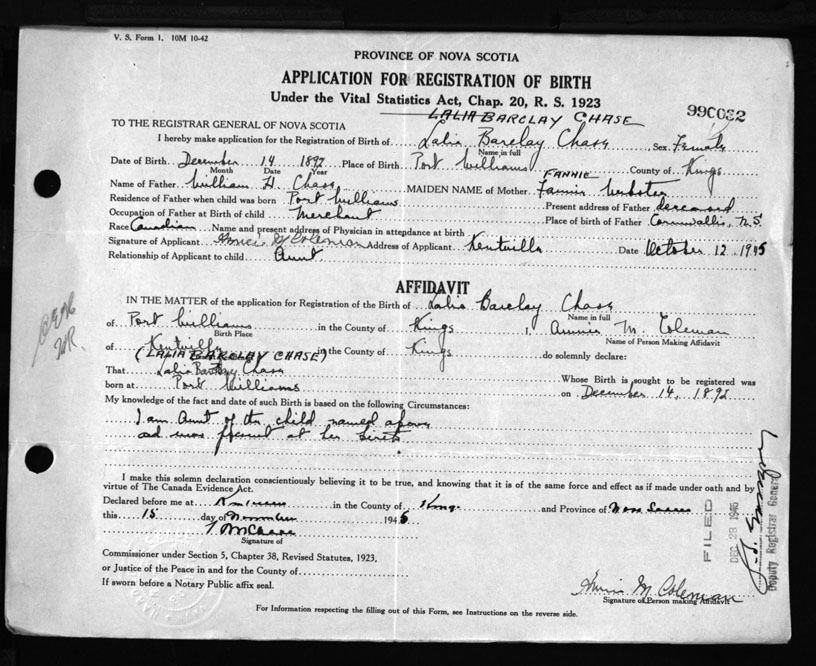 V. S. Form 1. 10M 10-42
PROVINCE OF NOVA SCOTIA
APPLICATION FOR REGISTRATION OF BIRTH
Under the Vital Statistics Act, Chap. 20, R. S. 1923
LALIA BARCLAY CHASE
990032
TO THE REGISTRAR GENERAL OF NOVA SCOTIA
I hereby make application for the Registration of Birth of Lalia Barclay Chase Sex Female
Name in full
Date of Birth December 14 1892 Place of Birth Port Williams County of Kings
Month Date Year
FANNIE
Name of Father William H. Chase MAIDEN NAME of Mother Fannie Webster
Residence of Father when child was born Port Williams Present address of Father deceased
Occupation of Father at Birth of child Merchant Place of birth of Father Cornwallis, N.S.
Race Canadian Name and present address of Physician in attendance at birth
Signature of Applicant Annie M Coleman Address of Applicant Kentville Date October 12 1945
Relationship of Applicant to child Aunt
AFFIDAVIT
IN THE MATTER of the application for Registration of the Birth of Lalia Barclay Chase
Name in full
of Port Williams in the County of Kings I, Annie M. Coleman
Birth Place Name of Person Making Affidavit
of Kentville in the County of Kings do solemnly declare:
(LALIA BARCLAY CHASE)
That Lalia Barclay Chase Whose Birth is sought to be registered was
born at Port Williams on December 14, 1892
My knowledge of the fact and date of such Birth is based on the following Circumstances:
I am Aunt of the child named above
and was present at her birth
I make this solemn declaration conscientiously believing it to be true, and knowing that it is of the same force and effect as if made under oath and by
virtue of The Canada Evidence Act.
Declared before me at in the County of Kings and Province of Nova Scotia
this 15 day of November 1945
Signature of
Commissioner under Section 5, Chapter 38, Revised Statutes, 1923,
or Justice of the Peace in and for the County of
If sworn before a Notary Public affix seal.
Annie M Coleman
Signature of Person making Affidavit
For Information respecting the filling out of this Form, see Instructions on the reverse side.
FILED
DEC 28 1945
Deputy Registrar General